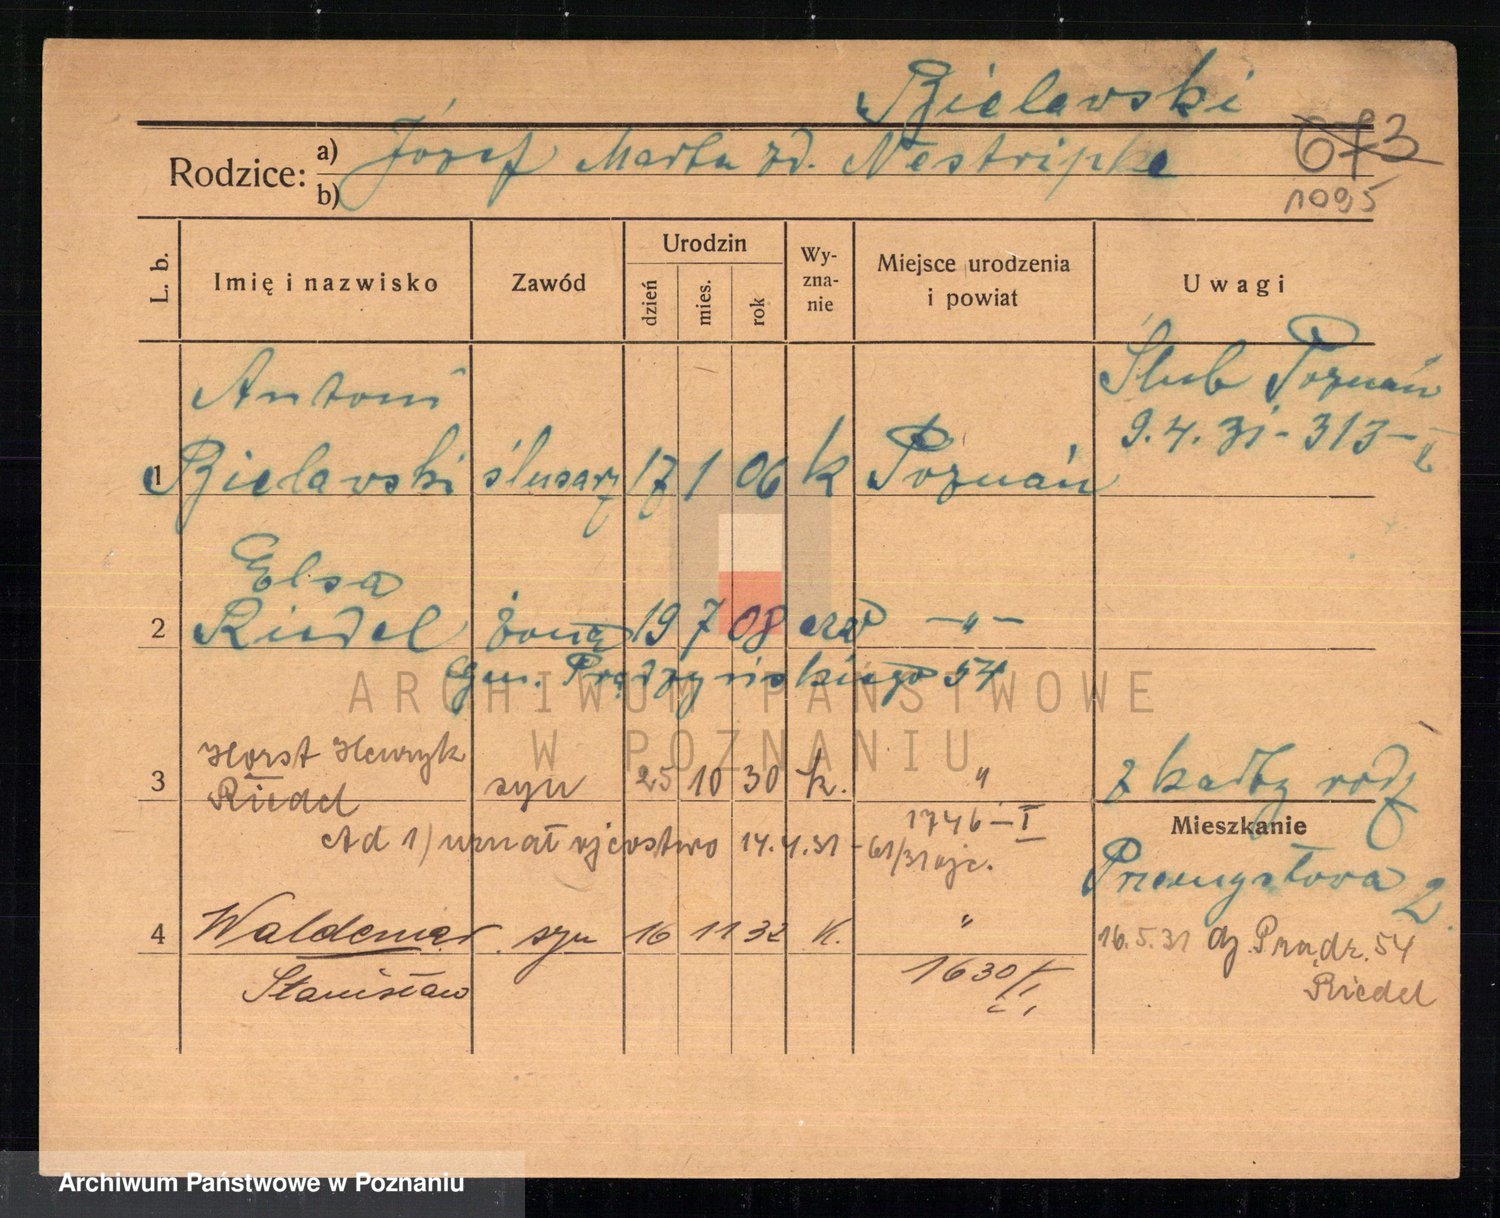 Bielawski
Rodzice: a) Józef Marta zd. Nestripke
b)
673
1095
L. b. Imię i nazwisko Zawód Urodzin Wyznanie Miejsce urodzenia i powiat Uwagi
dzień mies. rok
Ślub Poznań
9.4.31 - 313 - I
Antoni
1 Bielawski ślusarz 17 1 06 k Poznań
Elsa
2 Riedel żona 19 7 08 -„-
Gen. Prądzyńskiego 54
Horst Henryk
3 Riedel syn 25 10 30 k. „
z każdy rodz
1746 - I
Ad 1) uznał ojcostwo 14.4.31 - 61/31 ojc.
Mieszkanie
Przemysłowa 2.
4 Waldemar syn 16 11 32 K. „
Stanisław
1630/I
16.5.31 Prądz. 54
Riedel
ARCHIWUM PAŃSTWOWE
W POZNANIU
Archiwum Państwowe w Poznaniu